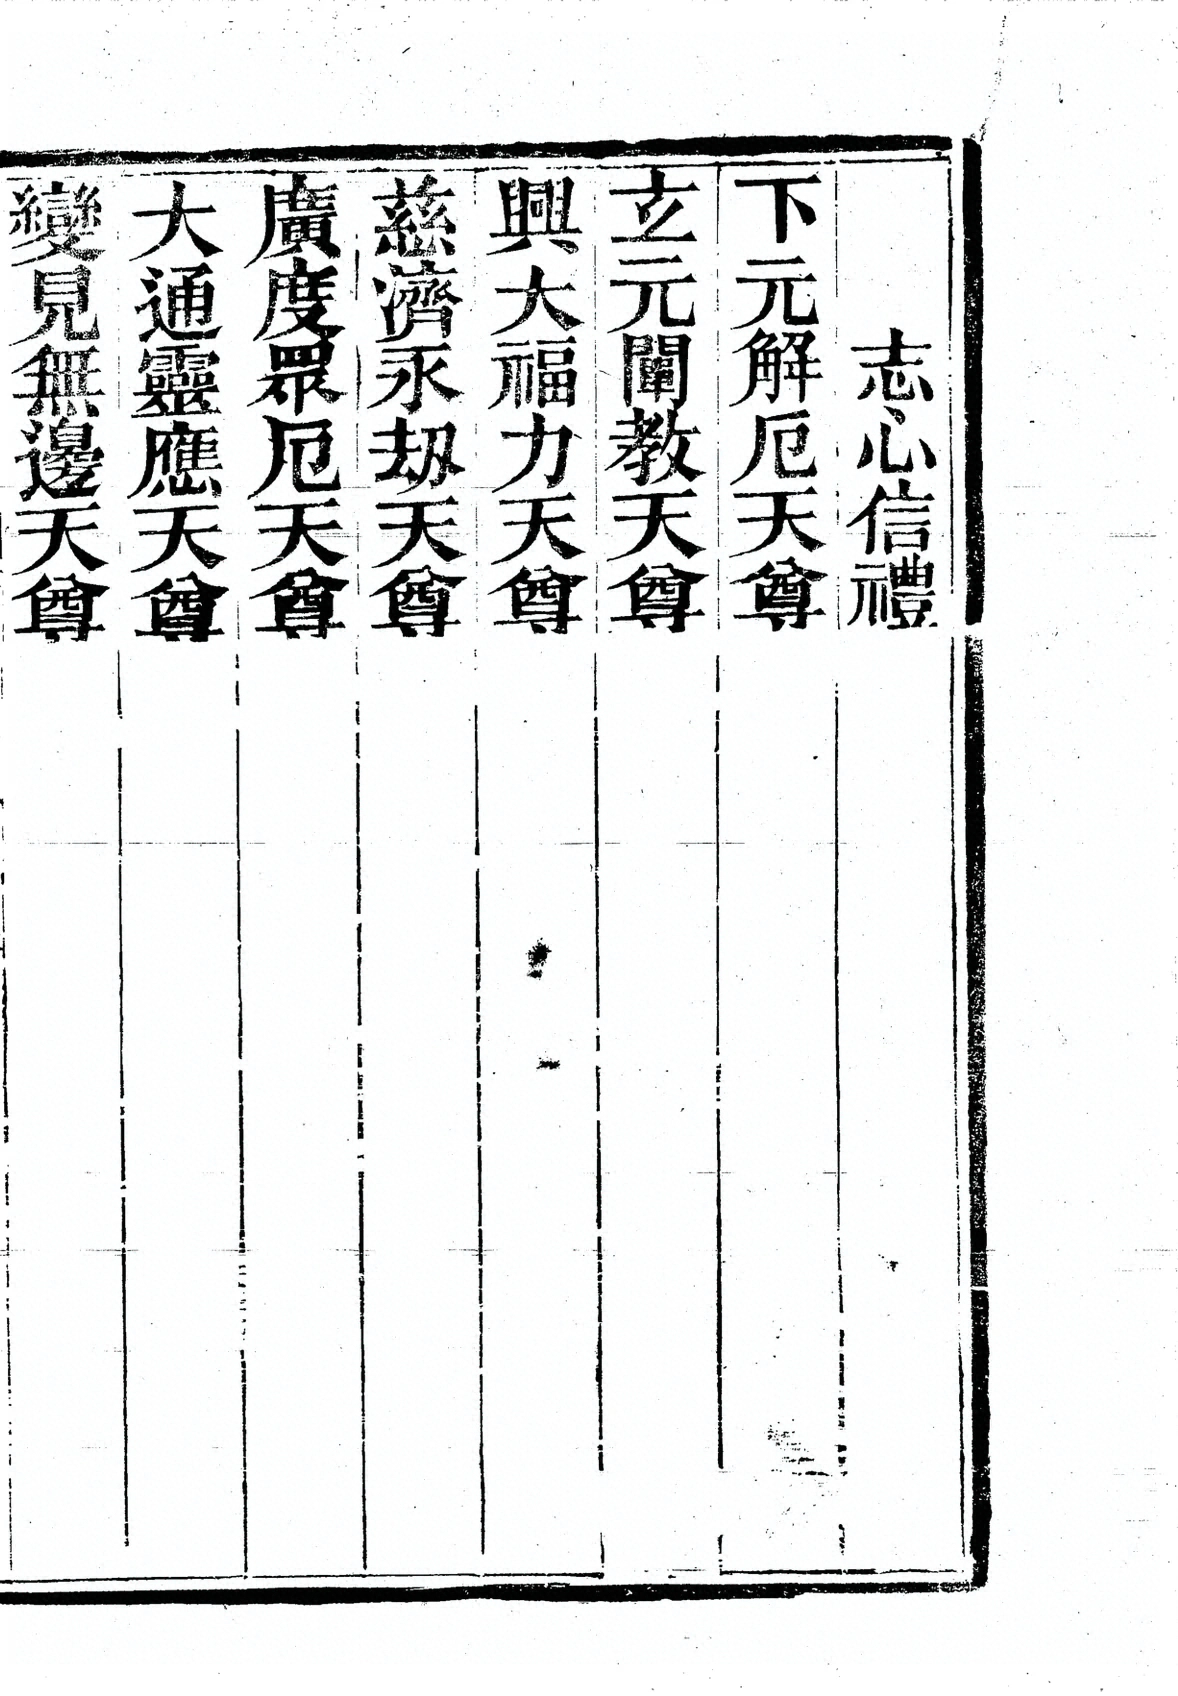 志心信禮
下元解厄天尊
玄元闡教天尊
興大福力天尊
慈濟永劫天尊
廣度眾厄天尊
大通靈應天尊
變見無邊天尊